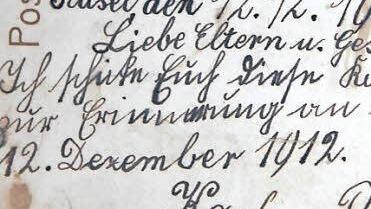 den 12. 12. 19
Liebe Eltern u. Ges
Ich schicke Euch diese Ka
zur Erinnerung an
12. Dezember 1912.
Pos